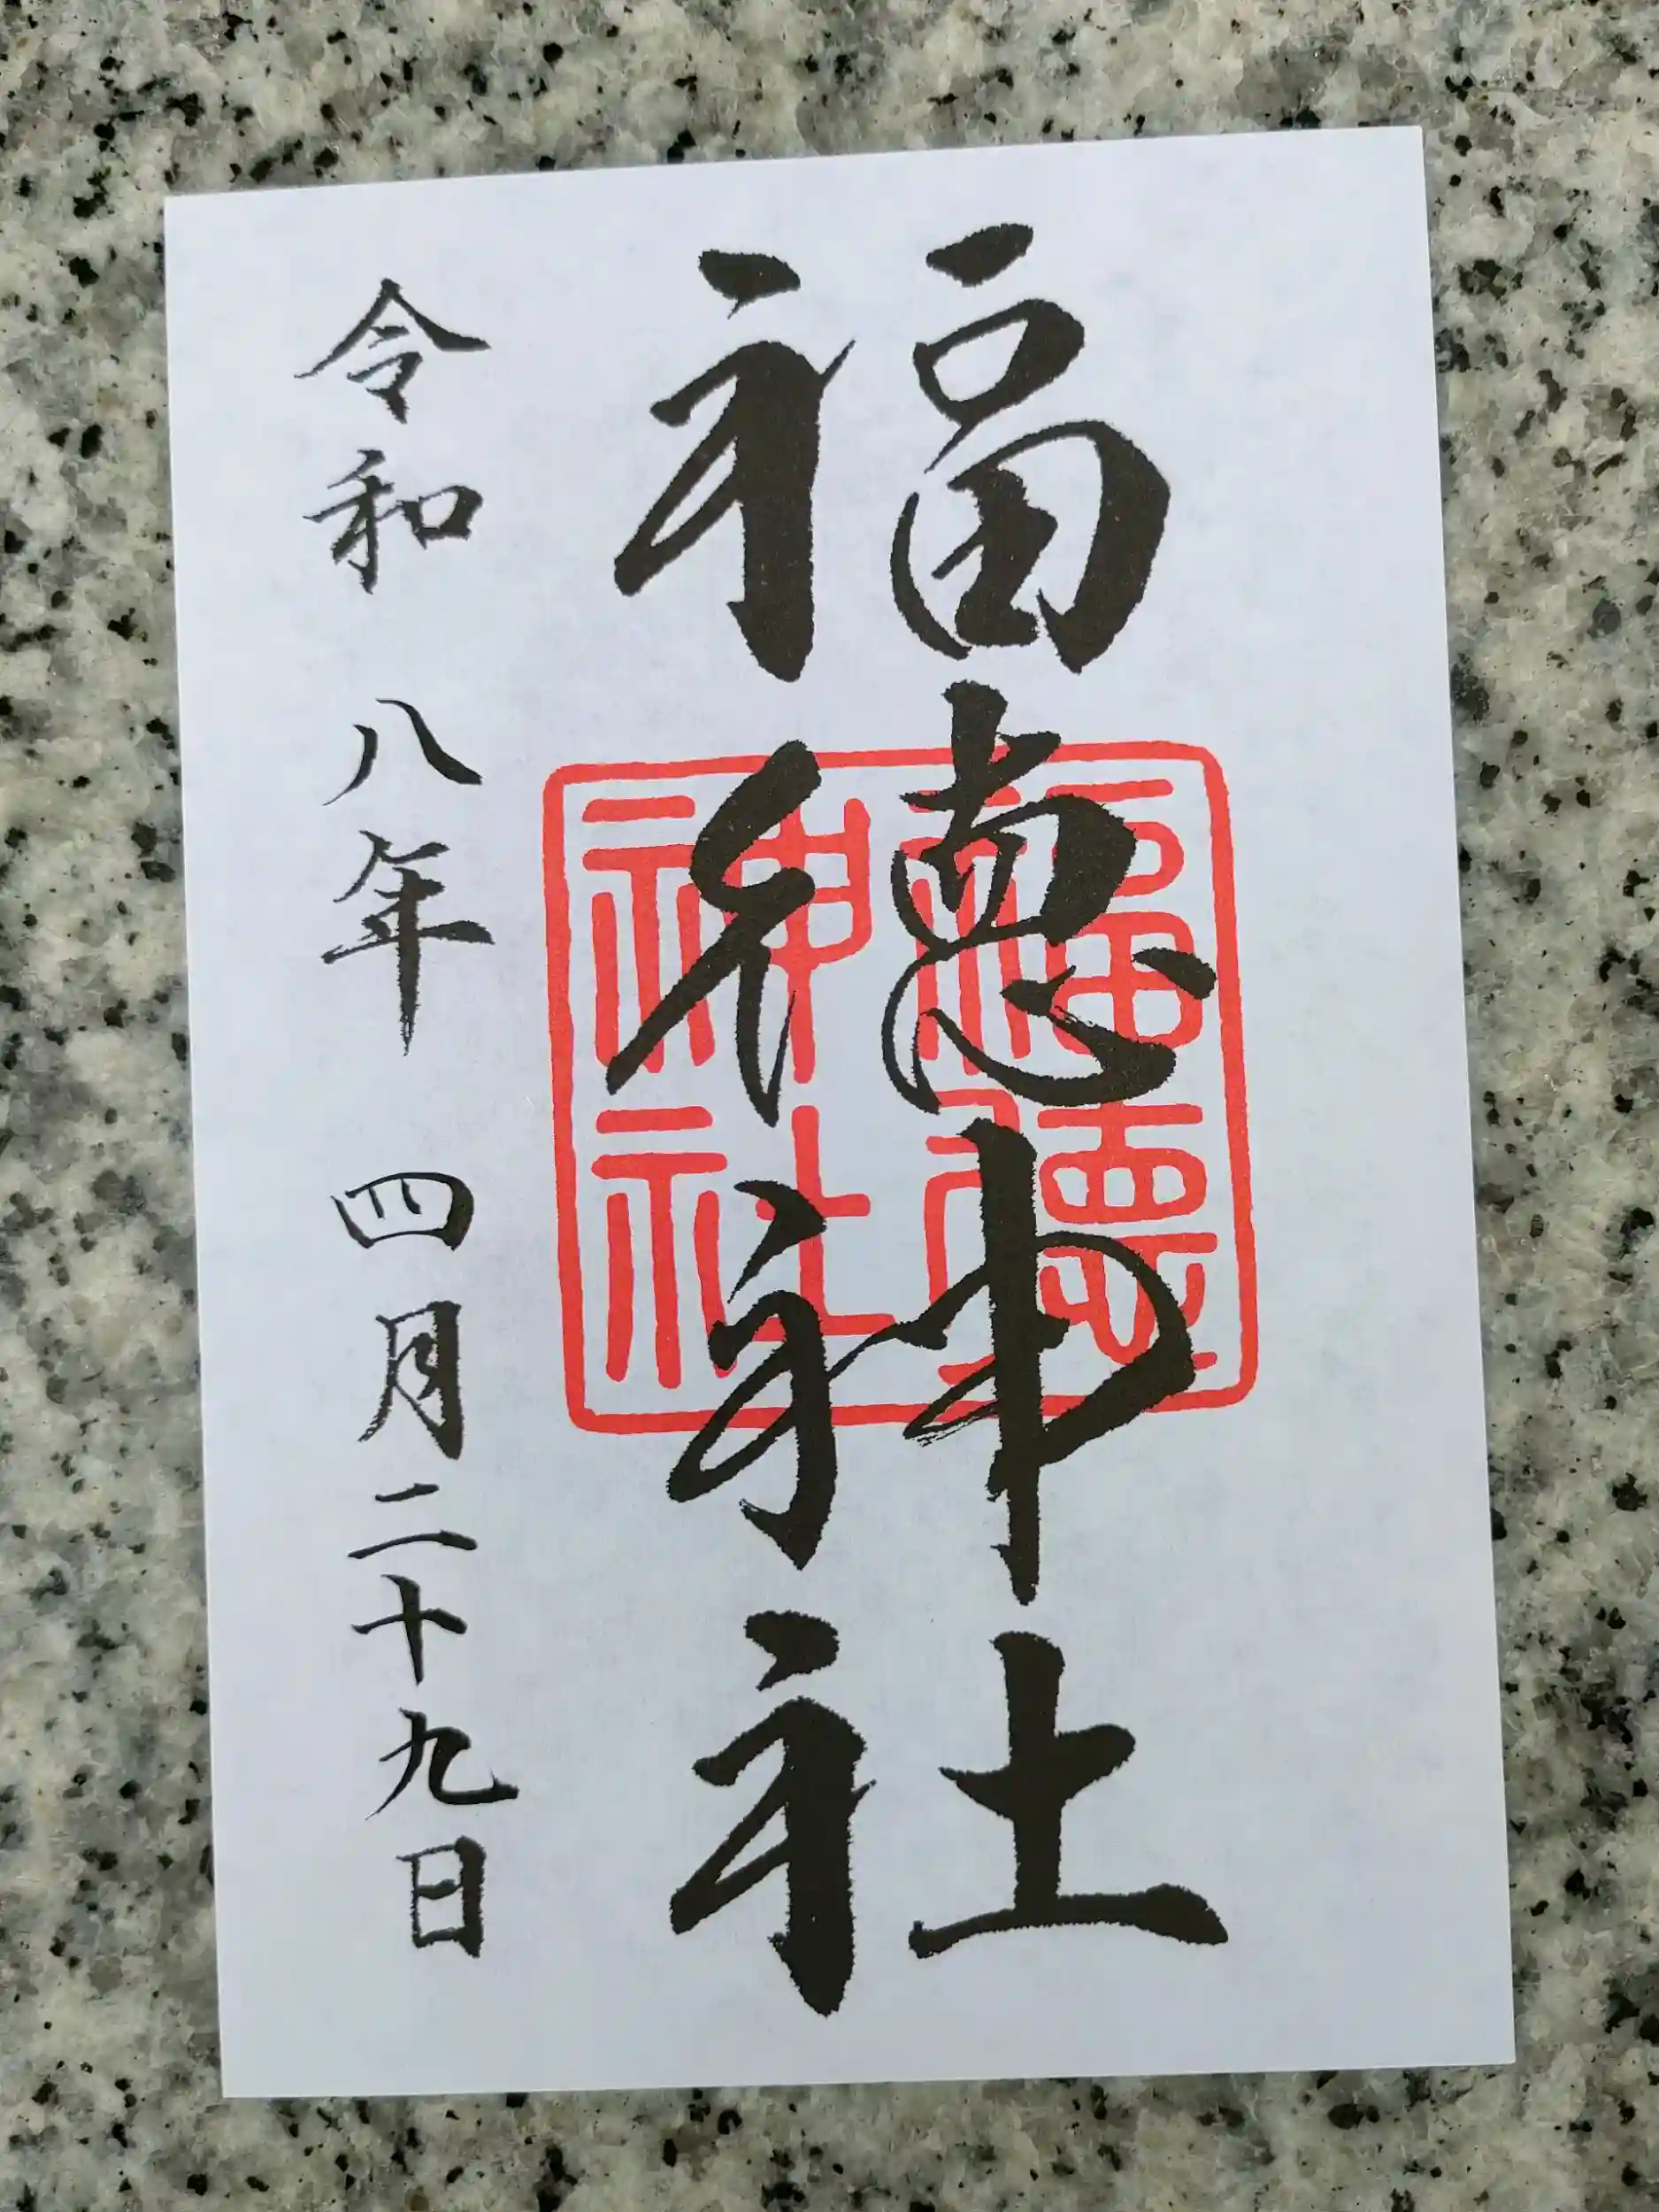 福徳神社
福徳神社
令和八年四月二十九日